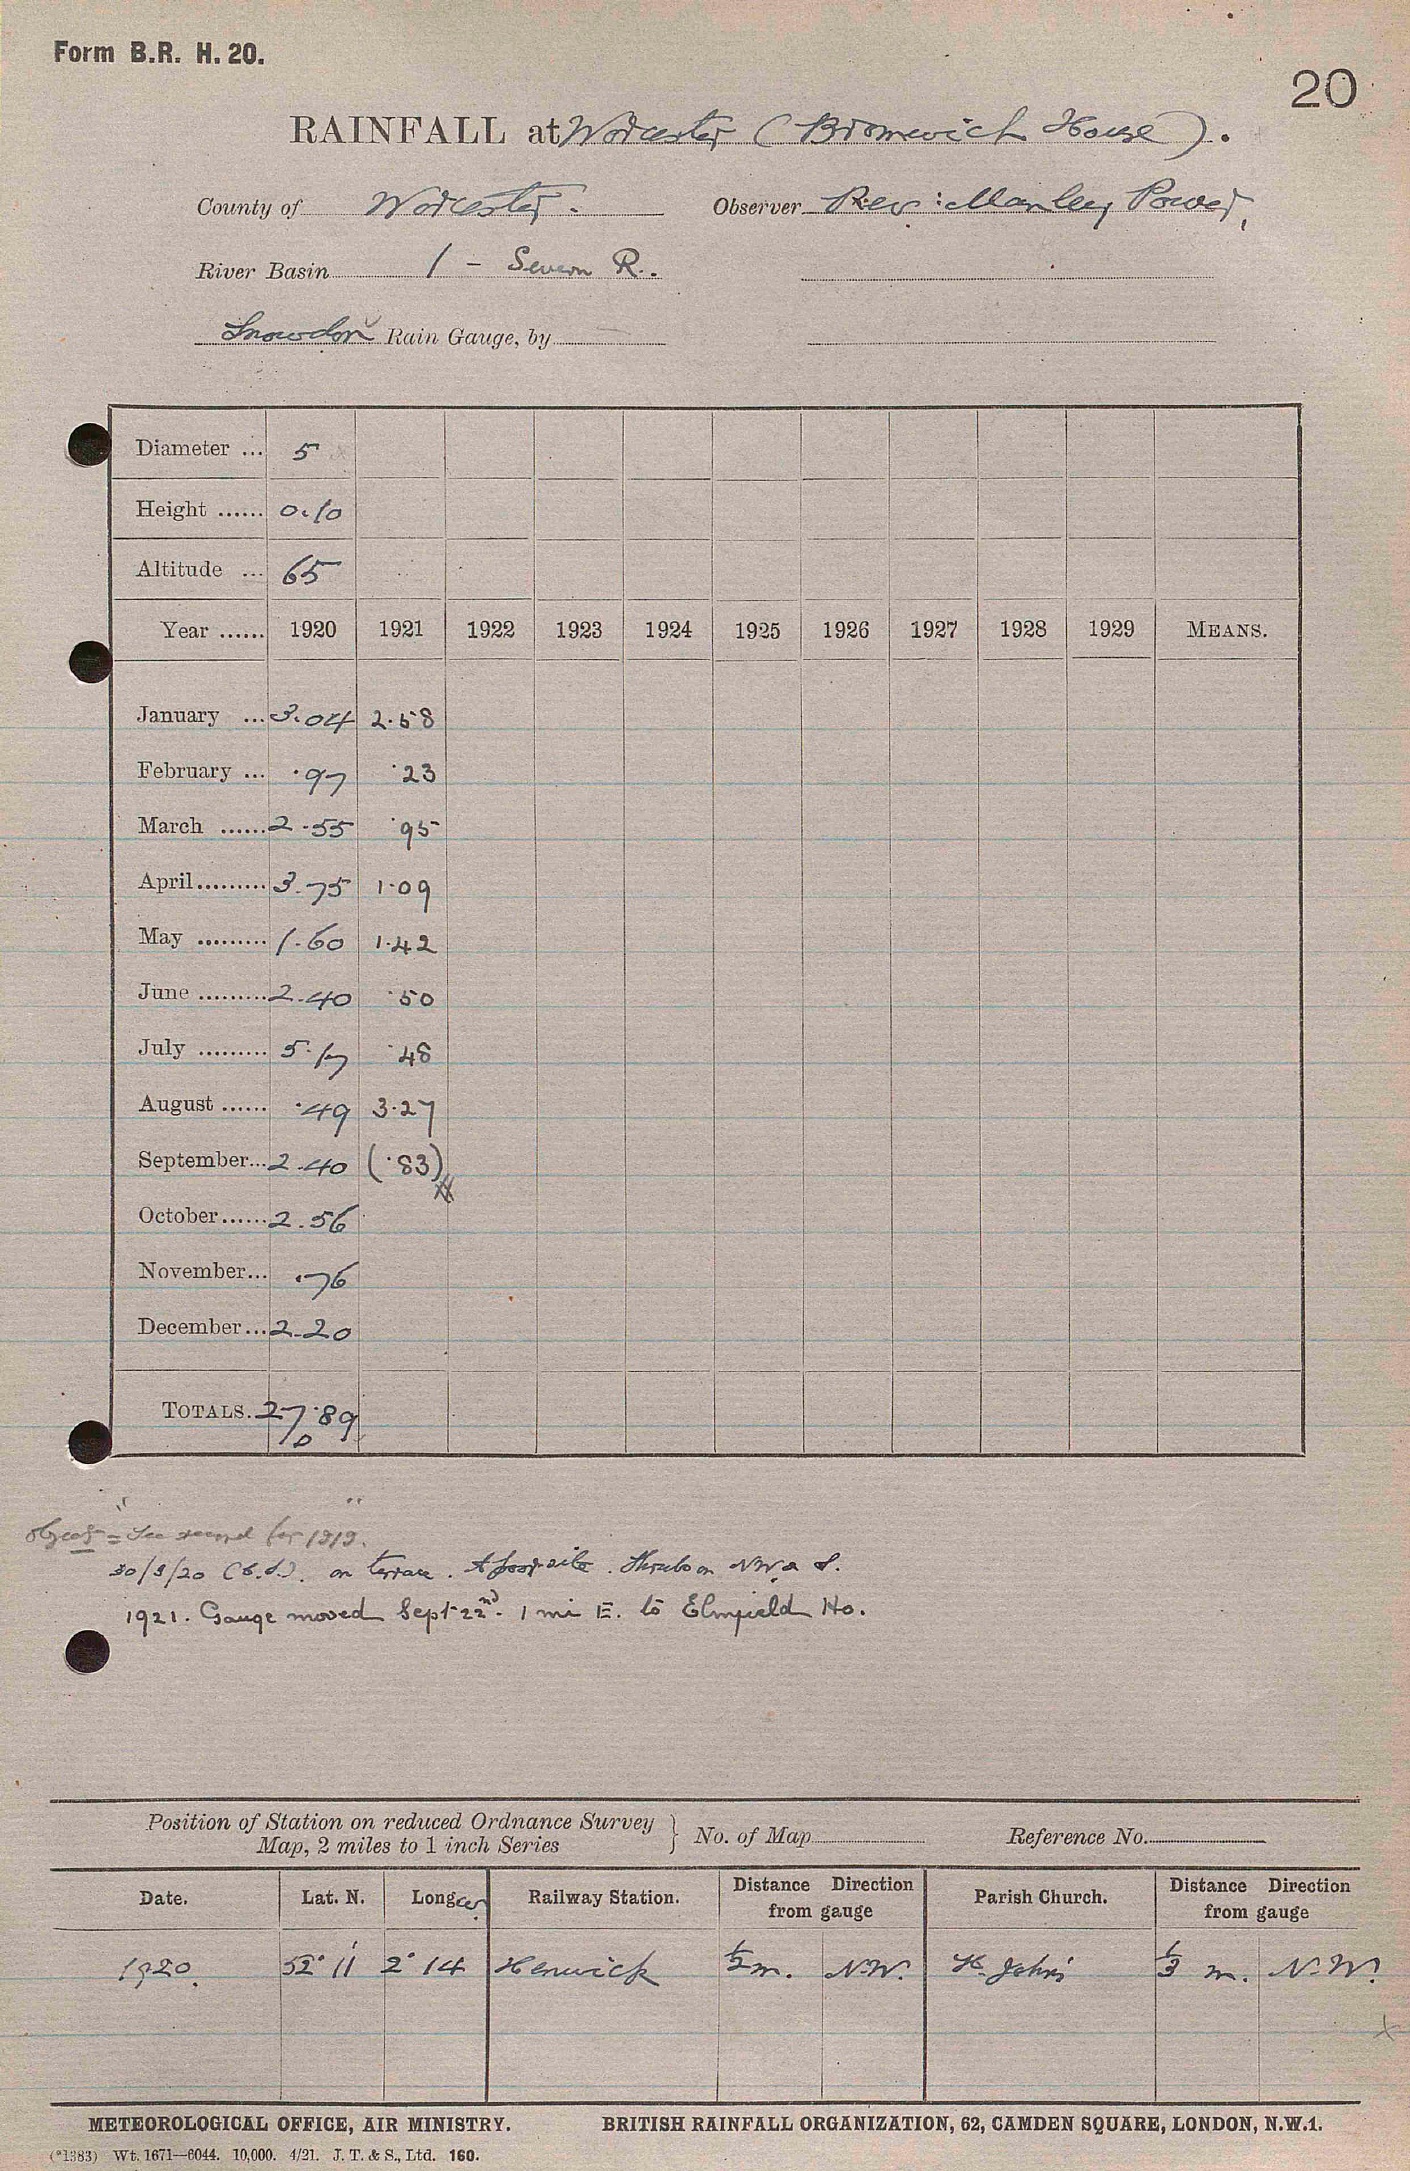 Form B.R. H. 20.
20
RAINFALL at Worcester (Bromwich House).
County of Worcester. Observer Rev: Manley Power,
River Basin 1 - Severn R.
Snowdon Rain Gauge, by
Diameter ... 5
Height ...... 0.10
Altitude ... 65
Year ...... 1920 1921 1922 1923 1924 1925 1926 1927 1928 1929 MEANS.
January ... 3.04 2.58
February ... .97 .23
March ...... 2.55 .95
April ......... 3.75 1.09
May ......... 1.60 1.42
June ......... 2.40 .50
July ......... 5.17 .48
August ...... .49 3.27
September... 2.40 (.83)
October...... 2.56
November... .76
December... 2.20
TOTALS. 27.89
"See record for 1919."
30/9/20 on terrace. A poor site. Shrubs on NW & S.
1921. Gauge moved Sept 22nd. 1 mi E. to Elmfield Ho.
Position of Station on reduced Ordnance Survey
Map, 2 miles to 1 inch Series } No. of Map Reference No.
Date. Lat. N. Long W. Railway Station. Distance Direction from gauge Parish Church. Distance Direction from gauge
1920. 52° 11' 2° 14 Henwick ½ m. N.W. St. John's ⅓ m. N.W.
METEOROLOGICAL OFFICE, AIR MINISTRY. BRITISH RAINFALL ORGANIZATION, 62, CAMDEN SQUARE, LONDON, N.W.1.
(*1383) Wt. 1671—6044. 10,000. 4/21. J. T. & S., Ltd. 160.